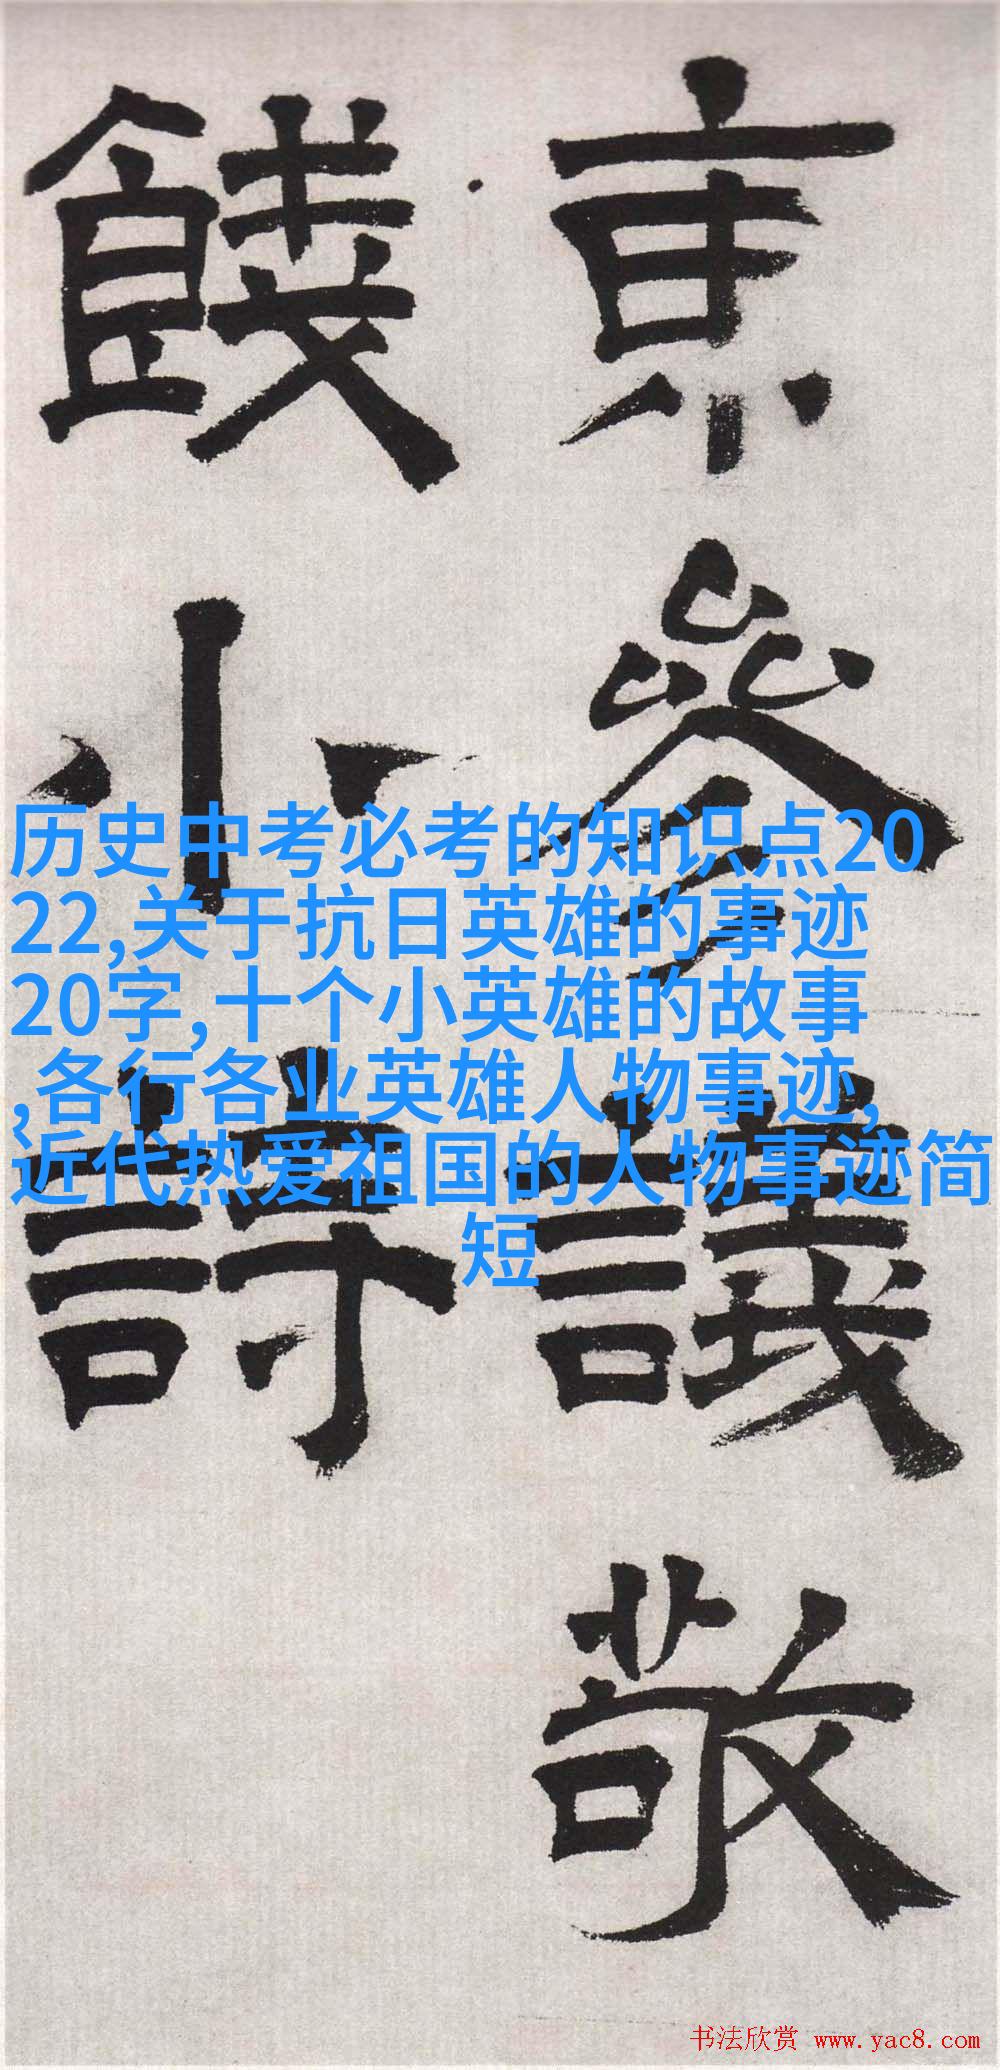 京參議敬
餞小詩
历史中考必考的知识点20
22,关于抗日英雄的事迹
20字,十个小英雄的故事
,各行各业英雄人物事迹,
近代热爱祖国的人物事迹简
短
书法欣赏 www.yac8.com